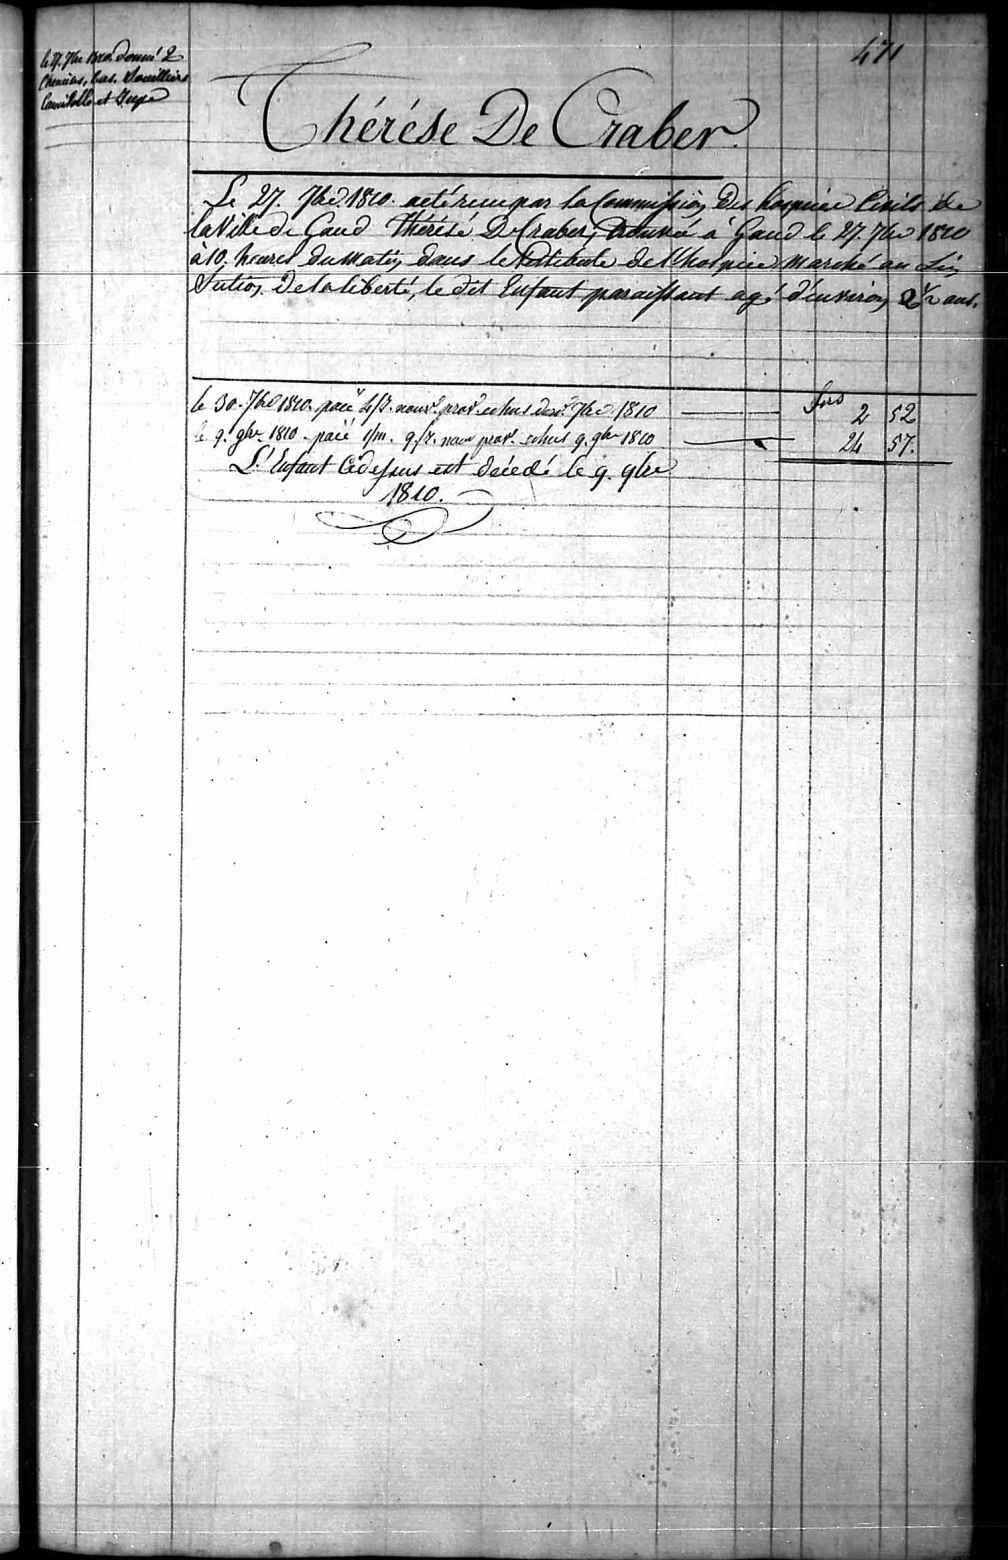 471
le 27. 7bre 1810. Donné 2
Chemises, bas, Souilliers
Camisolle et Juppe
Thérése De Craber.
Le 27. 7bre 1810. a eté recu par la Commission Des hospice Civils de
la Ville de Gand Thérésé De Craber, trouvée à Gand le 27. 7bre 1810
à 10. heures du Matin dans le Vestibule de l'hospice marché au Lin
Section De la liberté, le dit Enfant paraissant agé d'environ 2 1/2 ans.
frs
le 30. 7bre 1810. paié 4/J. nour. prov. echus 7bre 1810 2 52
le 9. 9bre 1810 - paié 1/m. 9/J. nour prov. echus 9. 9bre 1810 24 57.
L'Enfant Cidessus est décedé le 9. 9bre
1810.